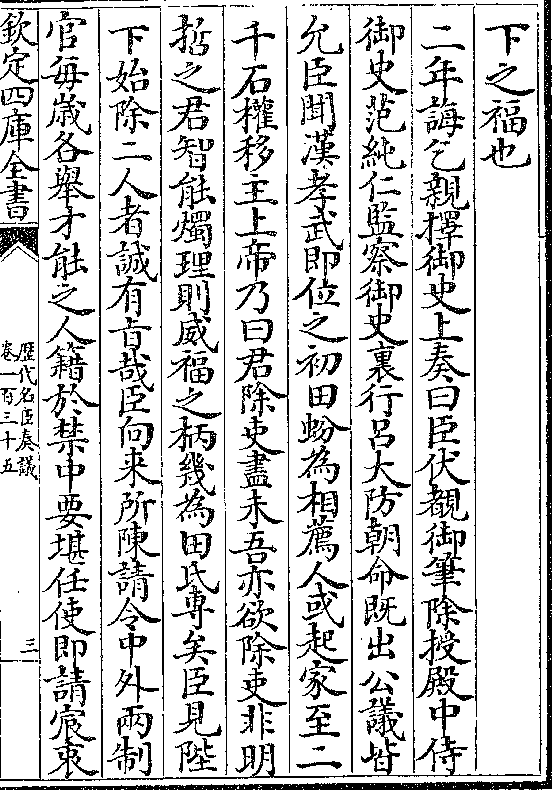 下之福也
二年誨乞親擇御史上奏曰臣伏覩御筆除授殿中侍
御史范純仁監察御史裏行呂大防朝命既出公議皆
允臣聞漢孝武即位之初田蚡為相薦人或起家至二
千石權移主上帝乃曰君除吏盡未吾亦欲除吏非明
哲之君智能燭理則威福之柄幾為田氏專矣臣見陛
下始除二人者誠有旨哉臣向来所陳請令中外兩制
官每歲各舉才能之人籍於禁中要堪任使即請宸衷
欽定四庫全書
歷代名臣奏議
卷一百三十五
三